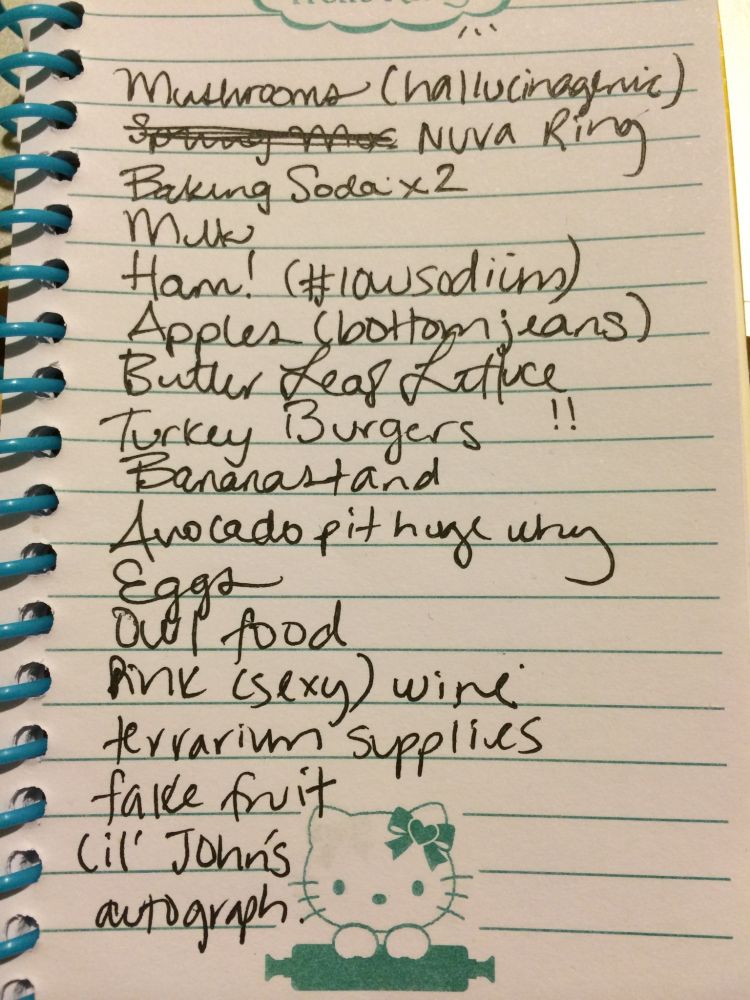 Mushrooms (hallucinagenic)
NUVA Ring
Baking Soda x2
Milk
Ham! (#lowsodium)
Apples (bottom jeans)
Butter Leaf Lettuce
Turkey Burgers !!
Bananastand
Avocado pit huge why
Eggs
Owl food
Pink (sexy) wine
terrarium supplies
fake fruit
Lil' John's
autograph.